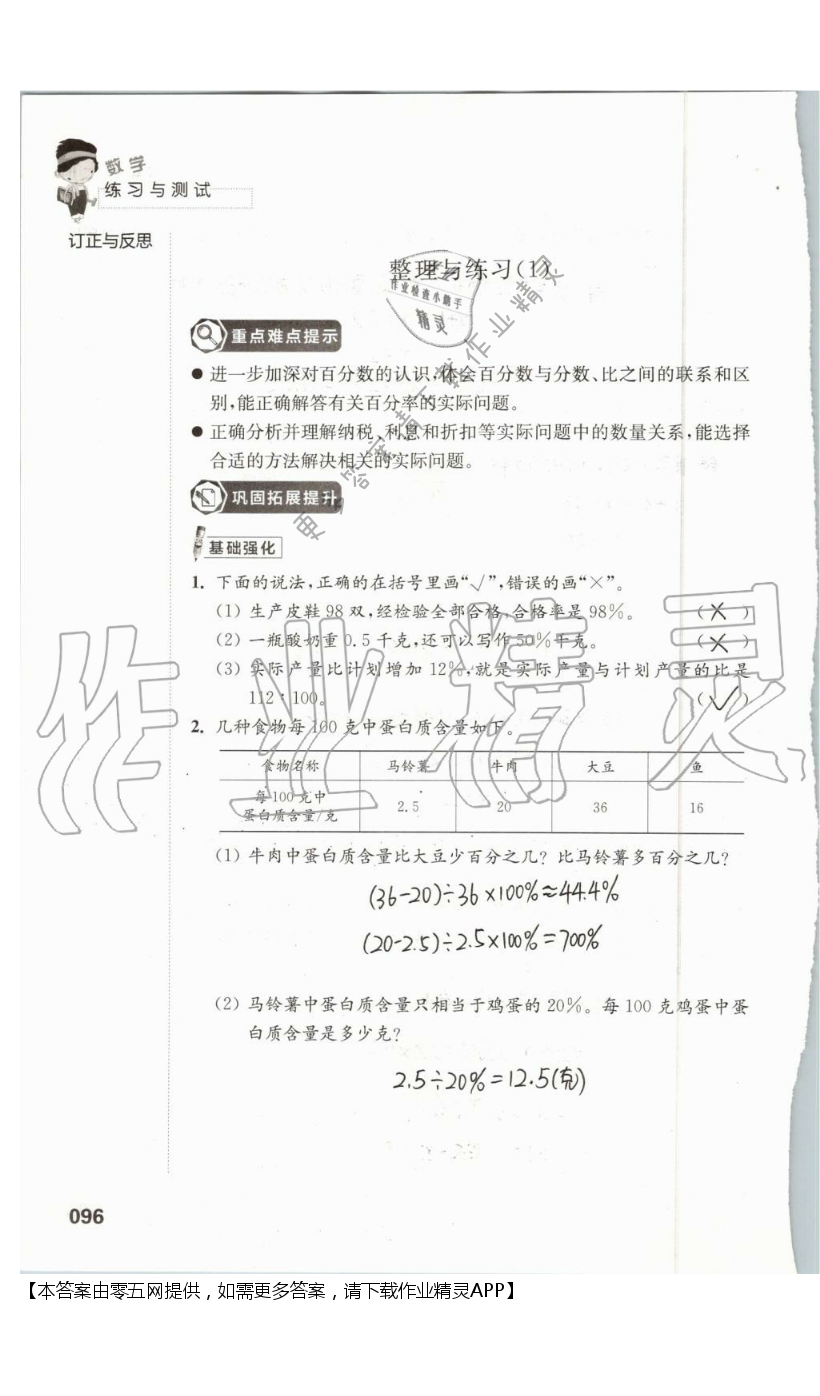 数学
练习与测试
订正与反思
整理与练习(1)
作业检查小能手
精灵
重点难点提示
● 进一步加深对百分数的认识,体会百分数与分数、比之间的联系和区
别,能正确解答有关百分率的实际问题。
● 正确分析并理解纳税、利息和折扣等实际问题中的数量关系,能选择
合适的方法解决相关的实际问题。
巩固拓展提升
基础强化
1. 下面的说法,正确的在括号里画“√”,错误的画“×”。
(1) 生产皮鞋 98 双,经检验全部合格,合格率是 98%。 (×)
(2) 一瓶酸奶重 0.5 千克,还可以写作 50%千克。 (×)
(3) 实际产量比计划增加 12%,就是实际产量与计划产量的比是
112∶100。 (√)
2. 几种食物每 100 克中蛋白质含量如下。
食物名称 马铃薯 牛肉 大豆 鱼
每 100 克中
蛋白质含量/克 2.5 20 36 16
(1) 牛肉中蛋白质含量比大豆少百分之几? 比马铃薯多百分之几?
(36-20)÷36×100%≈44.4%
(20-2.5)÷2.5×100%=700%
(2) 马铃薯中蛋白质含量只相当于鸡蛋的 20%。每 100 克鸡蛋中蛋
白质含量是多少克?
2.5÷20%=12.5(克)
作业精灵
096
【本答案由零五网提供，如需更多答案，请下载作业精灵APP】